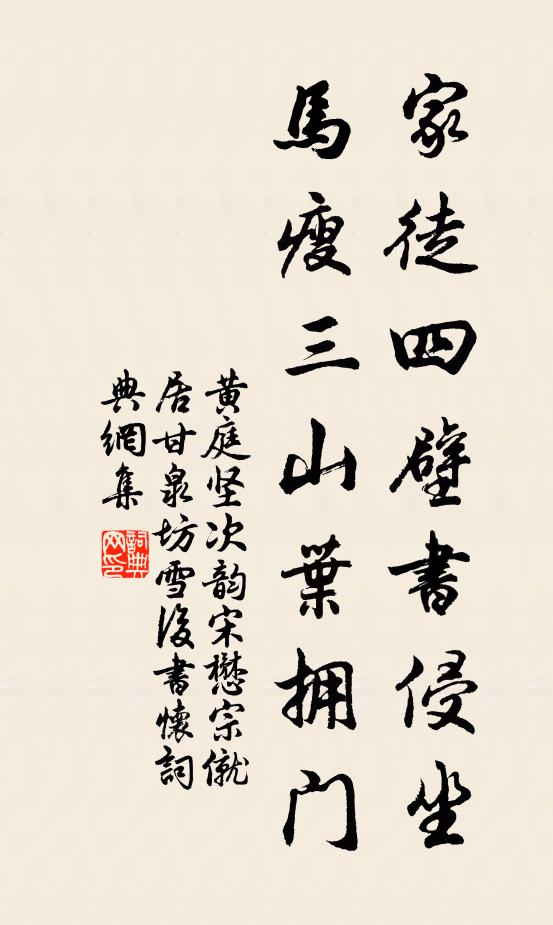 家徒四壁書侵坐
馬瘦三山葉拥门
黄庭坚次韵宋懋宗僦
居甘泉坊雪後書懷詞
典網集
詞典
网印